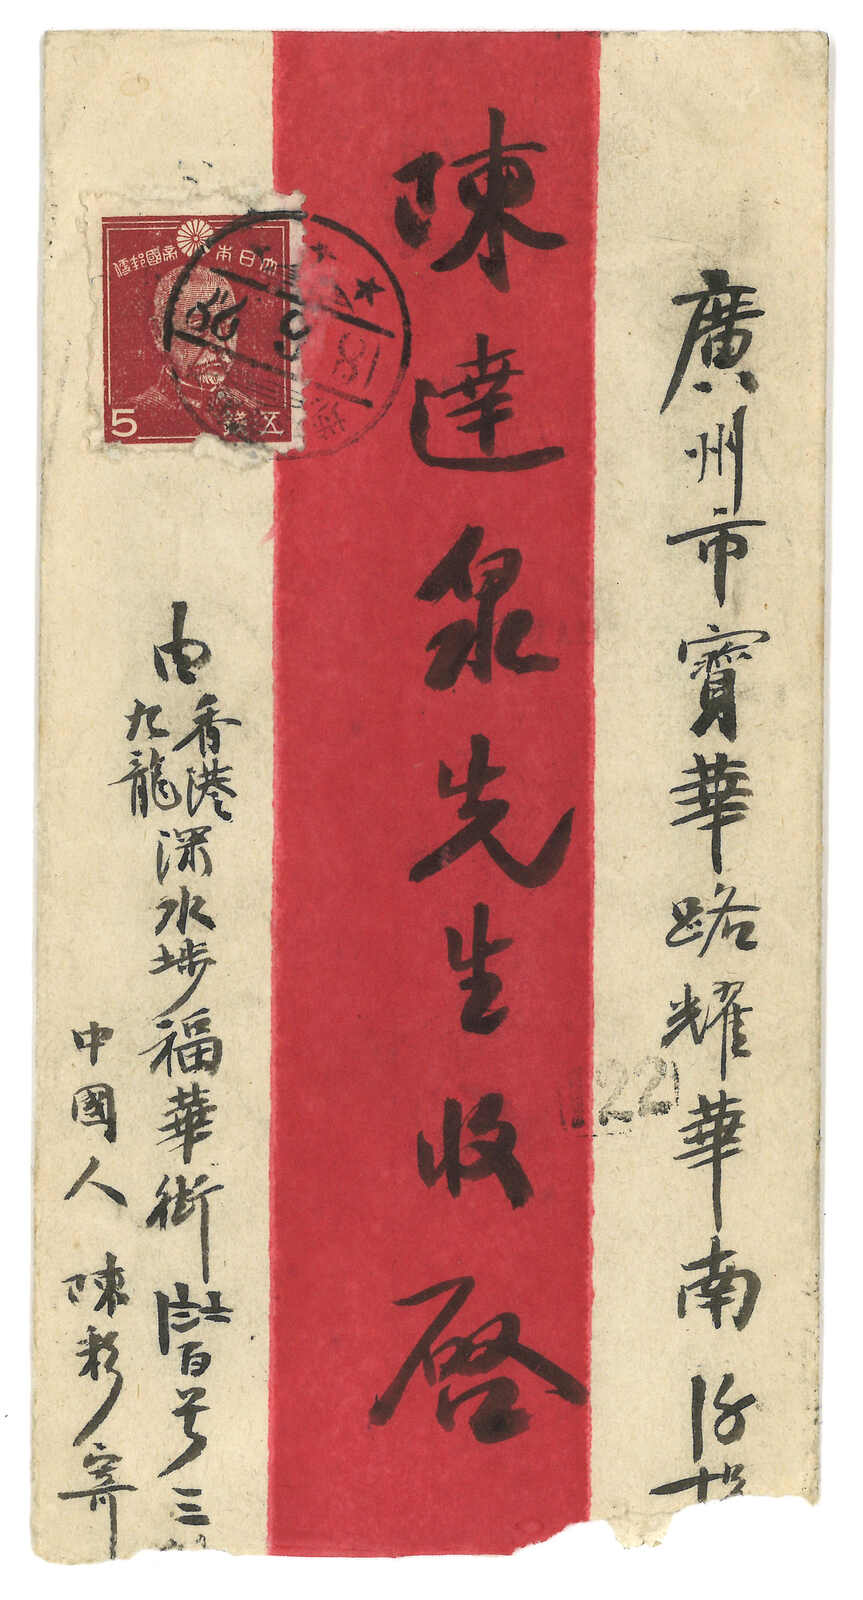 廣州市寶華路耀華南
陳達泉先生收啓
大日本帝國郵便
5
五錢
由香港
九龍
深水埗福華街
百号三
中國人陳彩寄